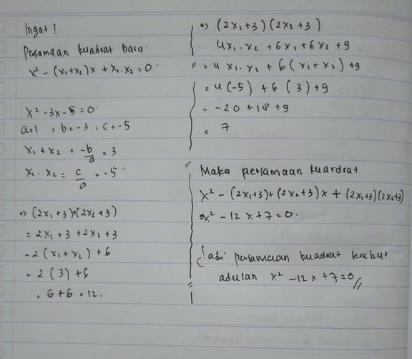 Ingat !
Persamaan kuadrat baru.
x² - (x₁+x₂)x + x₁.x₂ = 0.
x² - 3x - 5 = 0.
a = 1 , b = -3 , c = -5
x₁ + x₂ = -b/a = 3
x₁ . x₂ = c/a = -5
⇒ (2x₁+3)+(2x₂+3)
= 2x₁ + 3 + 2x₂ + 3
= 2 (x₁ + x₂) + 6
= 2 (3) + 6
= 6 + 6 = 12.
⇒ (2x₁+3) (2x₂+3)
4x₁.x₂ + 6x₁ + 6x₂ + 9
= 4 x₁.x₂ + 6 (x₁+x₂) + 9
= 4 (-5) + 6 (3) + 9
= -20 + 18 + 9
= 7
Maka persamaan kuardrat
x² - (2x₁+3)+(2x₂+3)x + (2x₁+3)(2x₂+3)
⇒ x² - 12x + 7 = 0.
Jadi persamaan kuadrat tersebut
adalah x² - 12x + 7 = 0 //